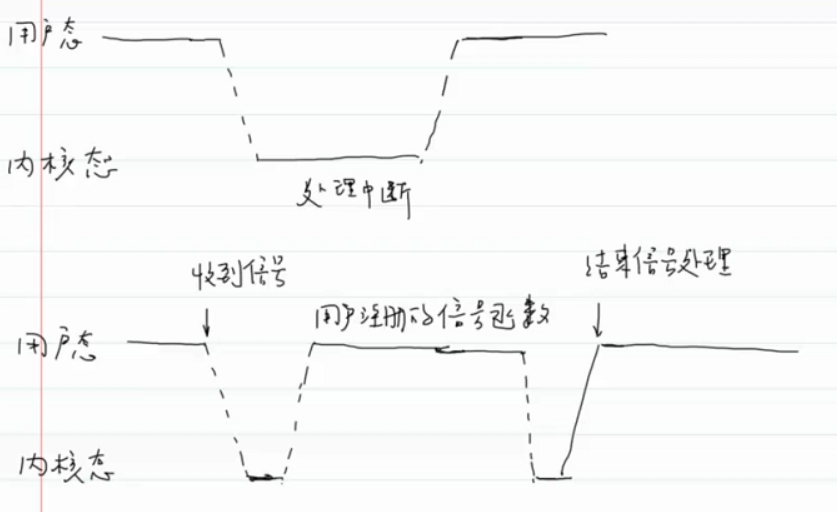 用户态
内核态
处理中断
收到信号
结束信号处理
用户注册的信号函数
用户态
内核态